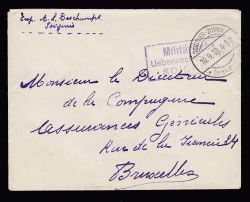 Exp. A. L. Deschamps,
Soignies
Milit
Ueberwach
SOIG
10.9.
Monsieur le Directeur
de la Compagnie
Assurances Générales
Rue de la
Bruxelles